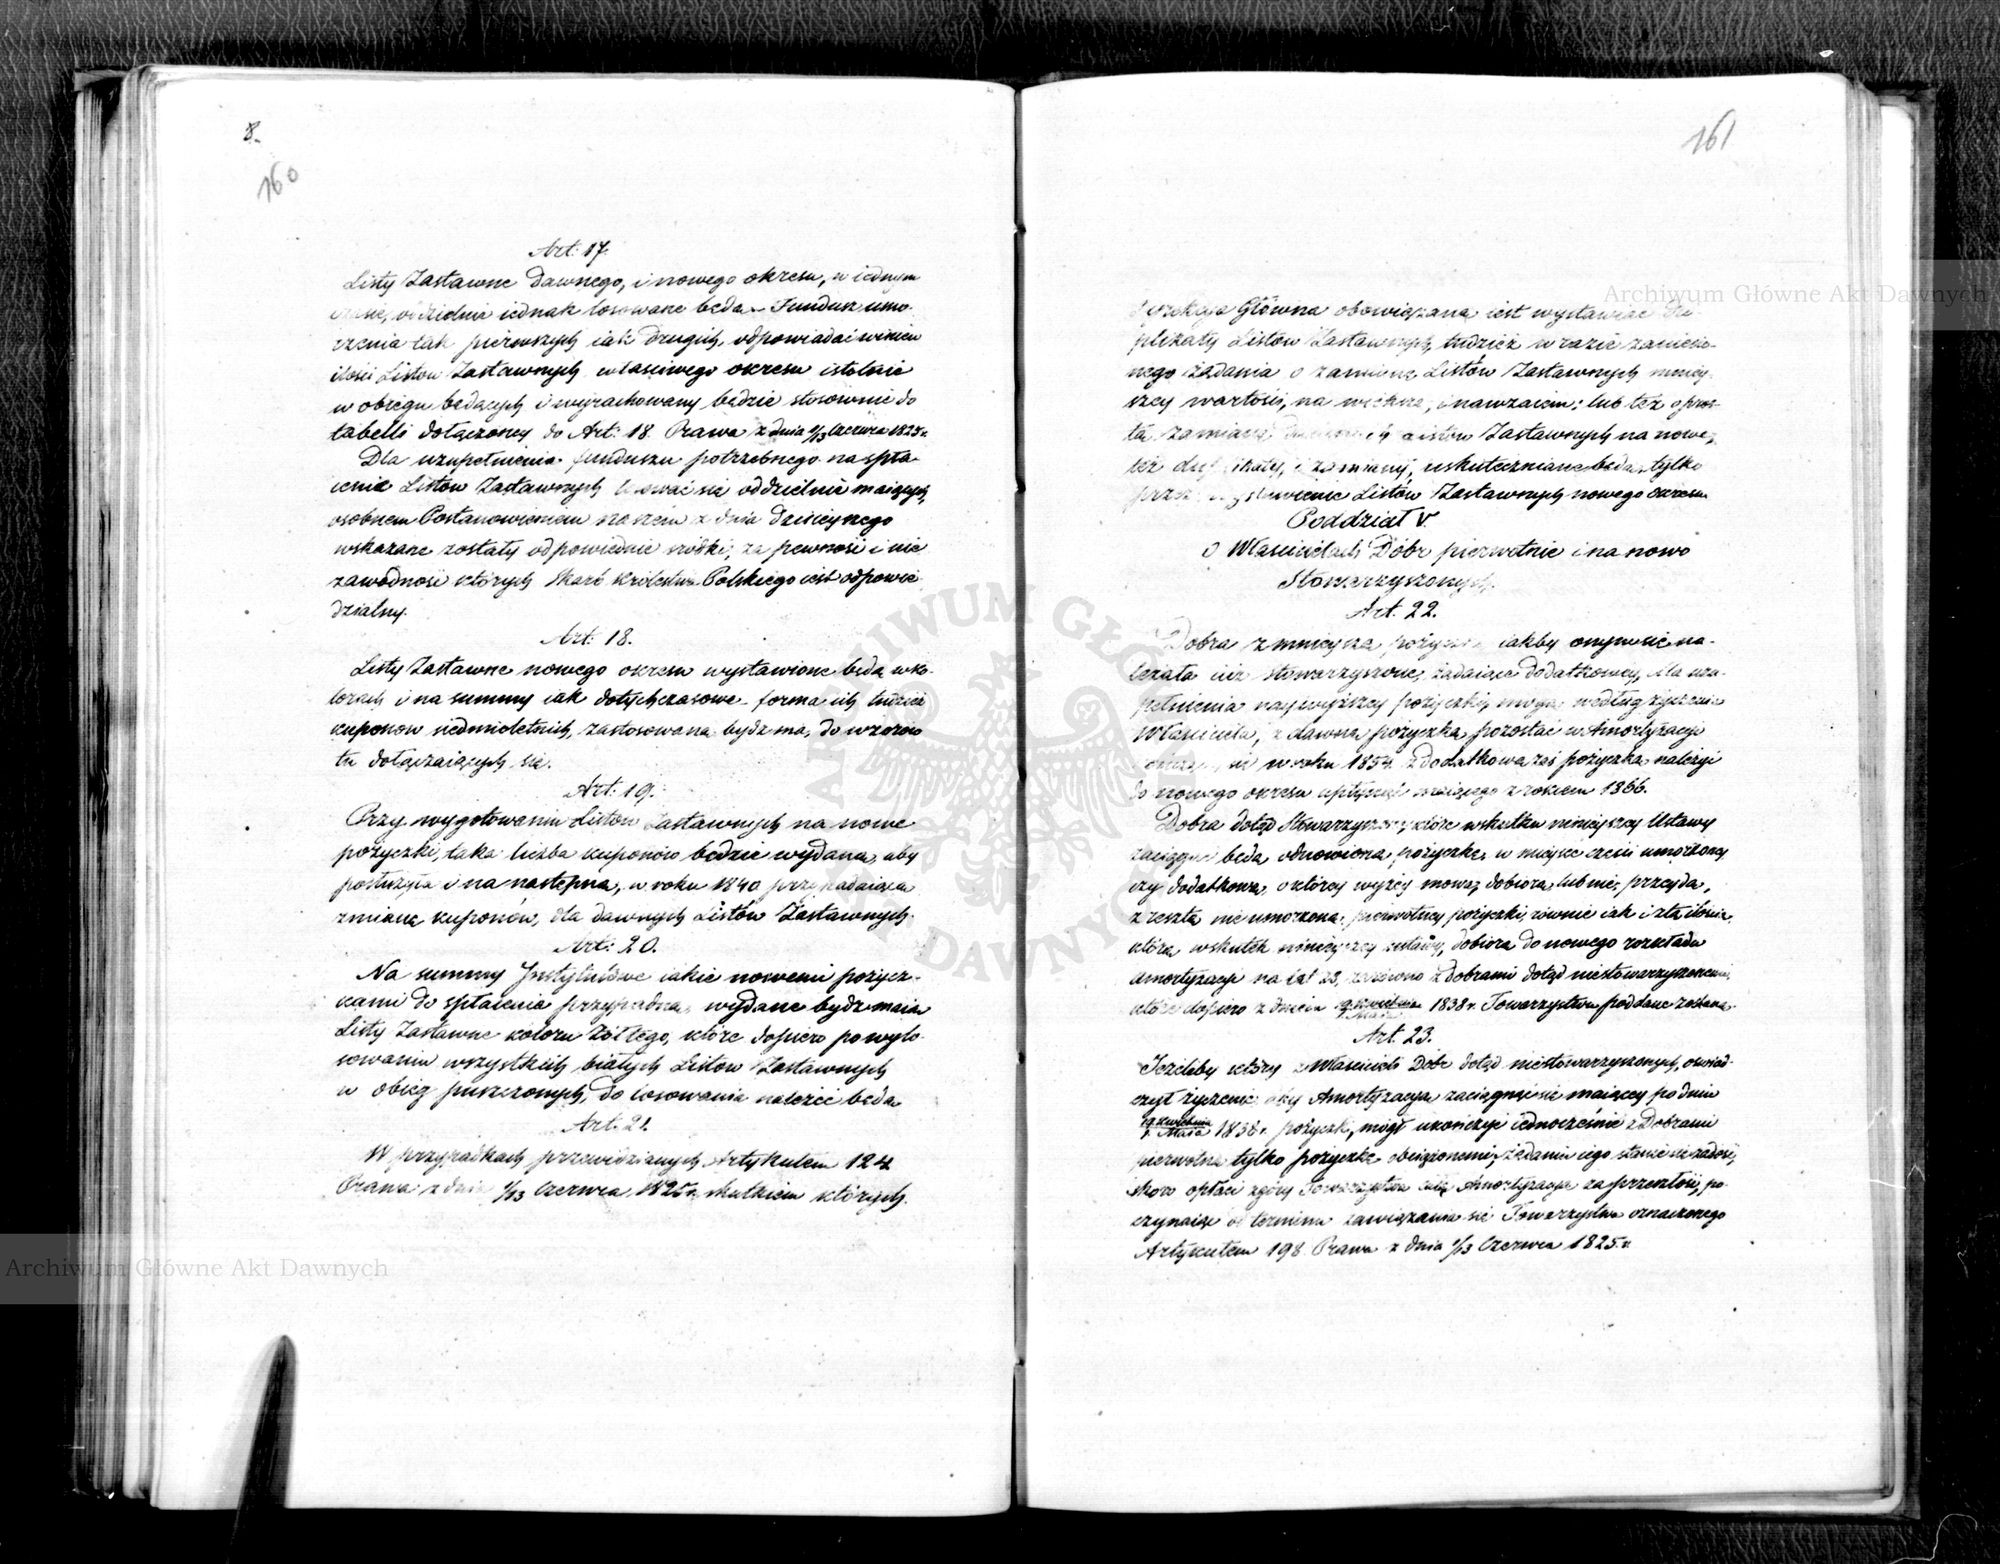 8.
160
Art: 17.
Listy Zastawne dawnego, i nowego okresu, w iednym
czasie, oddzielnie iednak losowane będą. Fundusz umo-
rzenia tak pierwszych iak drugich, odpowiadać winien
ilości Listów Zastawnych właściwego okresu istotnie
w obiegu będących i wyrachowany będzie stosownie do
tabelli dołączoney do Art: 18. Prawa z dnia 1/13 Czerwca 1825 r.
Dla uzupełnienia funduszu potrzebnego na spła-
cenie Listów Zastawnych losować się oddzielnie maiących,
osobnem Postanowieniem naszem z dnia dzisieyszego
wskazane zostały odpowiednie szrodki, za pewność i nie
zawodność których Skarb Królestwa Polskiego iest odpowie-
dzialny.
Art: 18.
Listy Zastawne nowego okresu wystawione będą w ko-
lorach i na summy iak dotychczasowe - forma ich tudzież
kuponów siedmioletnich, zastosowana bydź ma, do wzorów
tu dołączaiących się.
Art: 19.
Przy wygotowaniu Listów Zastawnych na nowe
pożyczki, taka liczba kuponów będzie wydana, aby
posłużyła i na następną, w roku 1840 przypadaiącą
zmianę kuponów, dla dawnych Listów Zastawnych.
Art: 20.
Na summy Instytutowe iakie nowemi pożycz-
kami do spłacenia przypadną, wydane bydź maią
Listy Zastawne koloru Żółtego, które dopiero po wylo-
sowaniu wszystkich białych Listów Zastawnych
w obieg puszczonych, do losowania należeć będą
Art: 21.
W przypadkach przewidzianych Artykułem 124
Prawa z dnia 1/13 Czerwca 1825 r. skutkiem których
161
Dyrekcya Główna obowiązana iest wystawiać du-
plikaty Listów Zastawnych, tudzież w razie zaniesio-
nego żądania o zamianę Listów Zastawnych mniey-
szey wartości, na większe, i nawzaiem; lub też o pros-
tą zamianę Listów Zastawnych na nowe,
też duplikaty, i zamiany, uskuteczniane będą tylko
przez wystawienie Listów Zastawnych nowego okresu
Poddział V.
O Właścicielach Dóbr pierwotnie i na nowo
Stowarzyszonych.
Art. 22.
Dobra z mnieyszą pożyczką iakby onym się na-
leżała iuż stowarzyszone, żądaiące dodatkowey, dla uzu-
pełnienia naywyższey pożyczki, mogą według życzenia
Właściciela, z dawną pożyczką pozostać w Amortyzacyi
się w roku 1854. z dodatkową zaś pożyczką należyć
do nowego okresu upłynąć maiącego z rokiem 1866.
Dobra dotąd Stowarzyszone, które w skutku ninieyszey Ustawy
zaciągać będą odnowioną pożyczkę, w mieysce części umorzoney
czy dodatkową, o którey wyżey mowa, dobiorą lub nie, przeydą,
z resztą nie umorzoną pierwotney pożyczki, równie iak i z tą ilością,
którą w skutek ninieyszey ustawy, dobiorą do nowego rozkładu
amortyzacyi na lat 28, zarówno z dobrami dotąd niestowarzyszonemi,
które dopiero z dniem 19 Kwietnia/1 Maia 1838 r. Towarzystwu poddane zostaną.
Art. 23.
Jeżeliby który z Właścicieli Dóbr dotąd niestowarzyszonych, oświad-
czył życzenie aby Amortyzacya zaciągnąć się maiącey po dniu
19 Kwietnia/1 Maia 1838 r. pożyczki, mógł ukończyć iednocześnie z Dobrami
pierwotną tylko pożyczką obciążonemi, żądaniu iego stanie się zadosić,
skoro opłaci zgóry Towarzystwu całą Amortyzacyą za przeszłość, po-
czynaiąc od terminu zawiązania się Towarzystwa oznaczonego
Artykułem 198. Prawa z dnia 1/13 Czerwca 1825 r.
Archiwum Główne Akt Dawnych
Archiwum Główne Akt Dawnych
ARCHIWUM GŁÓWNE AKT DAWNYCH